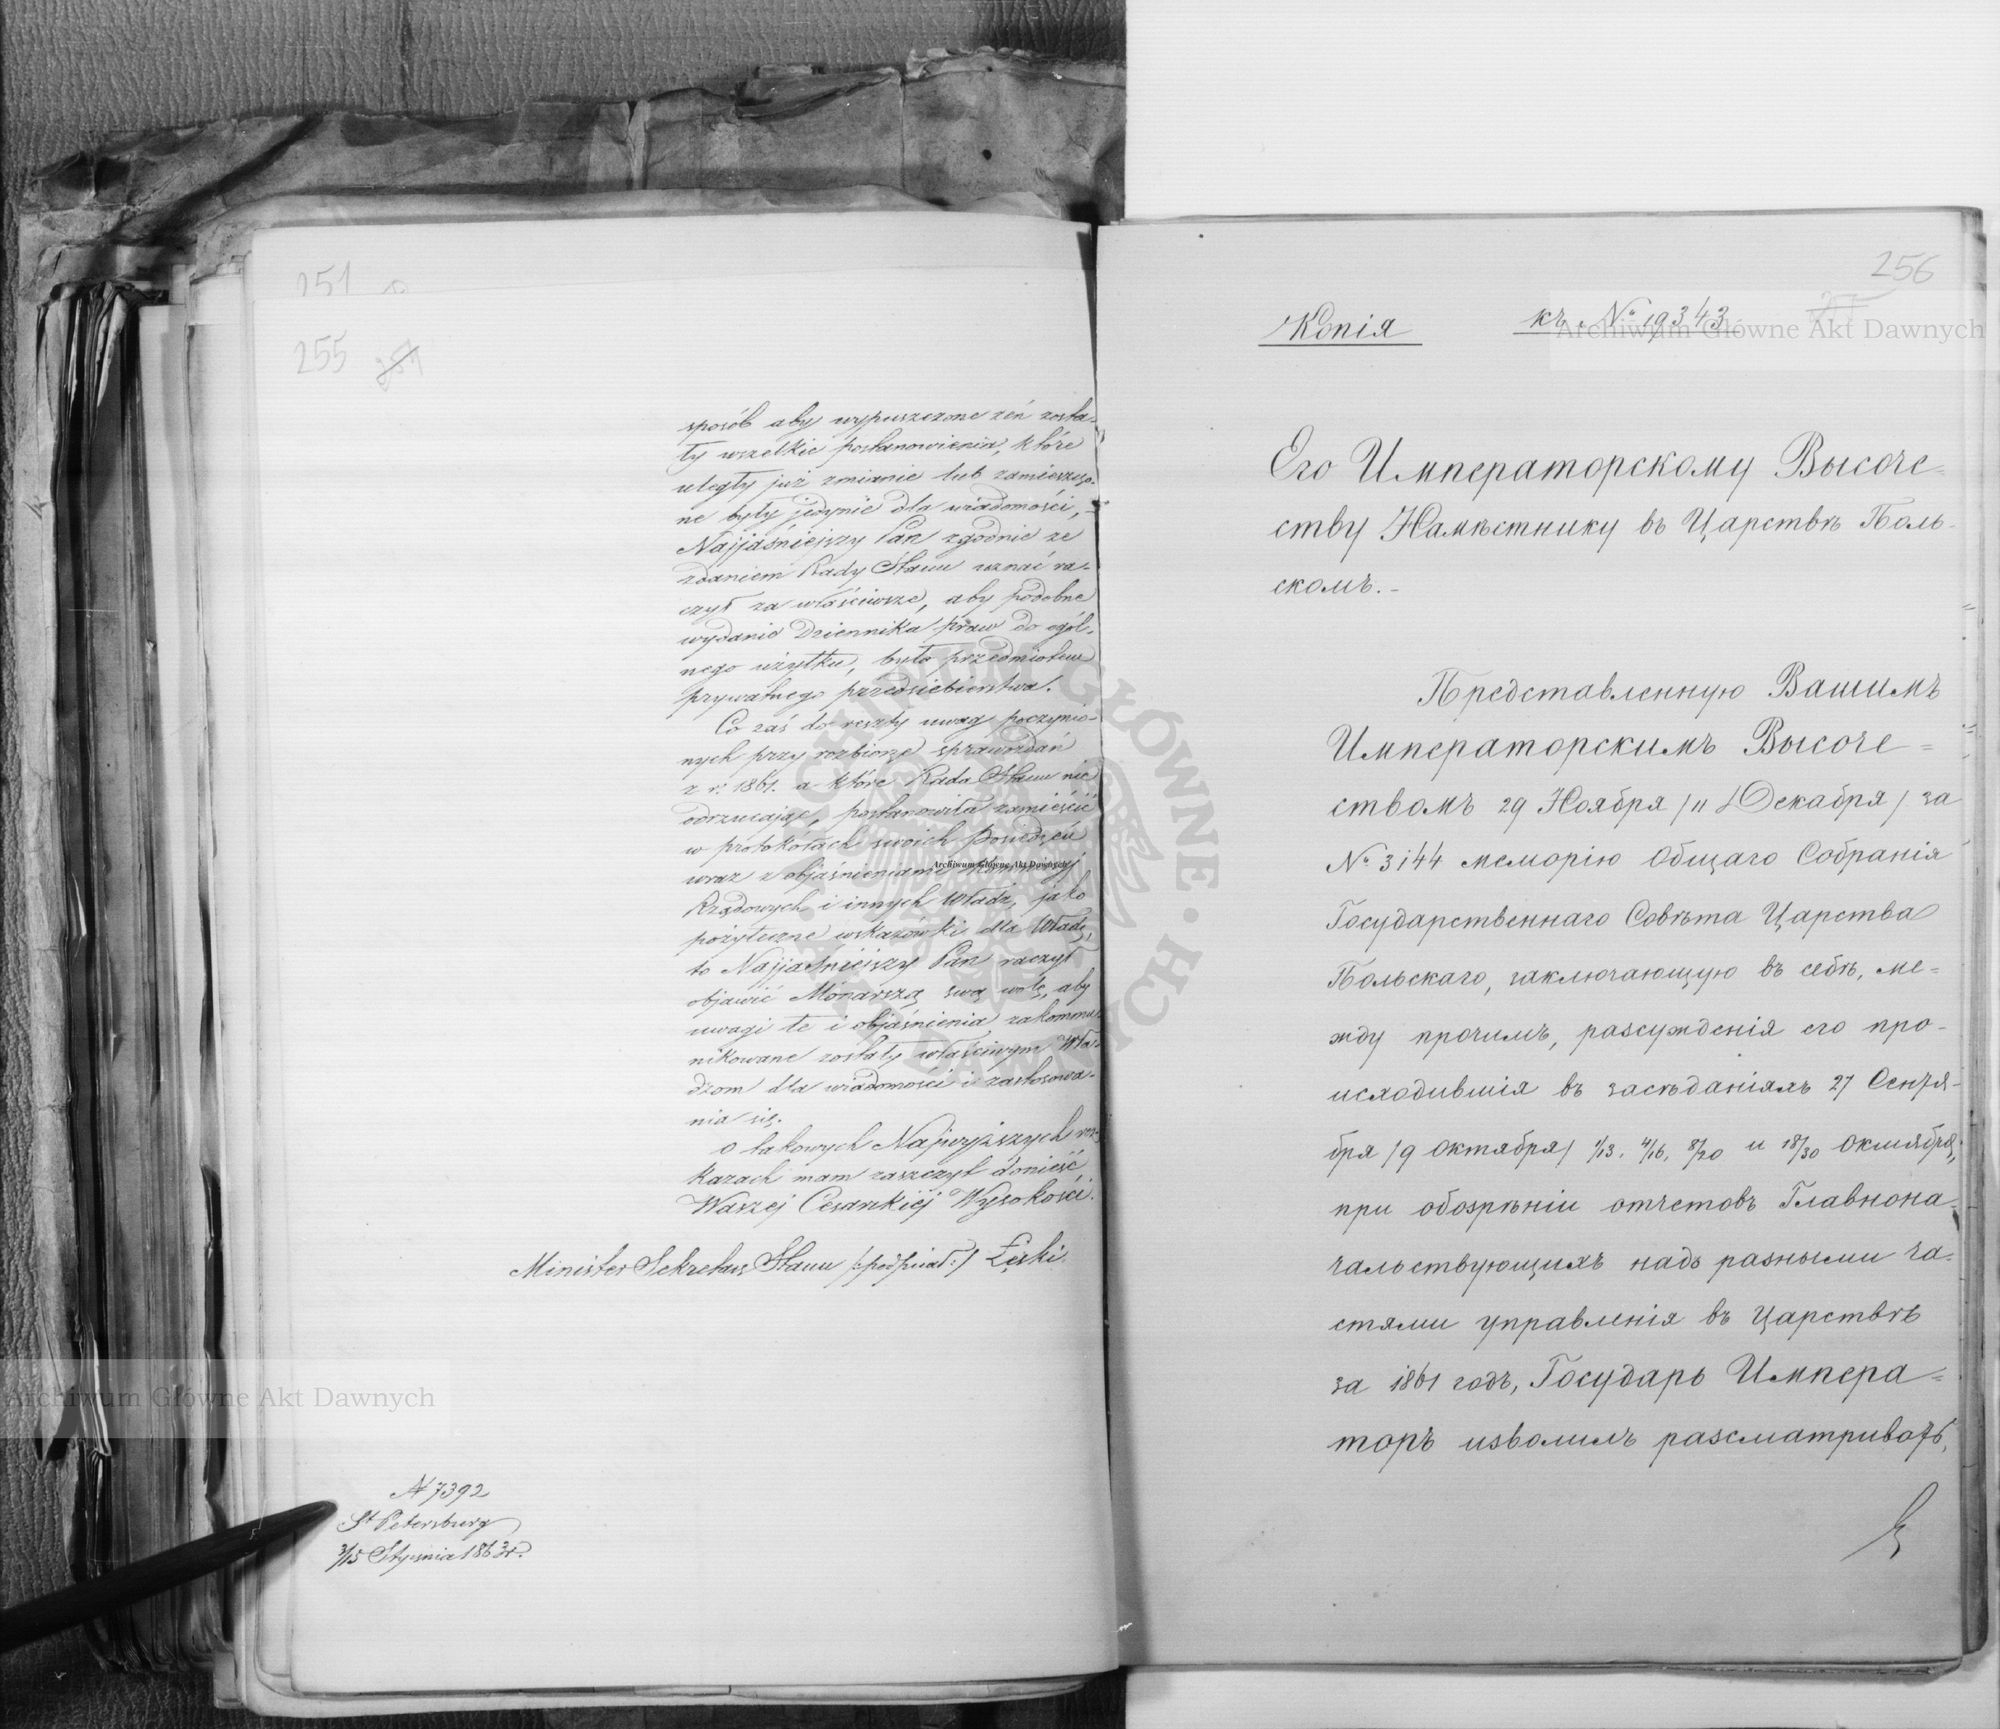 251
255 251
sposób aby wypuszczone zeń zosta-
ły wszelkie postanowienia, które
uległy już zmianie lub zamieszczo-
ne były jedynie dla wiadomości, -
Najjaśniejszy Pan zgodnie ze
zdaniem Rady Stanu uznać ra-
czył za właściwsze, aby podobne
wydanie Dziennika praw do ogól-
nego użytku, było przedmiotem
prywatnego przedsiebierstwa.
Co zaś do reszty uwag poczynio-
nych przy rozbiorze sprawozdań
z r. 1861. a które Rada Stanu nie
odrzucając, postanowiła zamieścić
w protokółach swoich Posiedzeń
wraz z objaśnieniami
Rządowych i innych Władz, jako
pożyteczne wskazówki dla Władz,
to Najjaśniejszy Pan raczył
objawić Monarszą swą wolę, aby
uwagi te i objaśnienia zakommu-
nikowane zostały właściwym Wła-
dzom dla wiadomości i zastosowa-
nia się.
O takowych Najwyższych roz-
kazach mam zaszczyt donieść
Waszej Cesarskiéj Wysokości.
Minister Sekretarz Stanu /:podpisał:/ Łęski.
№ 7392
St Petersburg
3/15 Stycznia 1863 r.
256
Копія къ № 19343
Его Императорскому Высоче=
ству Намѣстнику въ Царствѣ Поль-
скомъ. -
Представленную Вашимъ
Императорскимъ Высоче=
ствомъ 29 Ноября /11 Декабря/ за
№ 3144 меморію Общаго Собранія
Государственнаго Совѣта Царства
Польскаго, заключающую въ себѣ, ме=
жду прочимъ, разсужденія его про-
исходившія въ засѣданіяхъ 27 Сентя-
бря /9 Октября/ 1/13, 4/16, 8/20 и 18/30 Октября,
при обозрѣніи отчетовъ Главнона-
чальствующихъ надъ разными ча-
стями управленія въ Царствѣ
за 1861 годъ, Государь Импера=
торъ изволилъ разсматривать,
Archiwum Główne Akt Dawnych
Archiwum Główne Akt Dawnych
Archiwum Główne Akt Dawnych